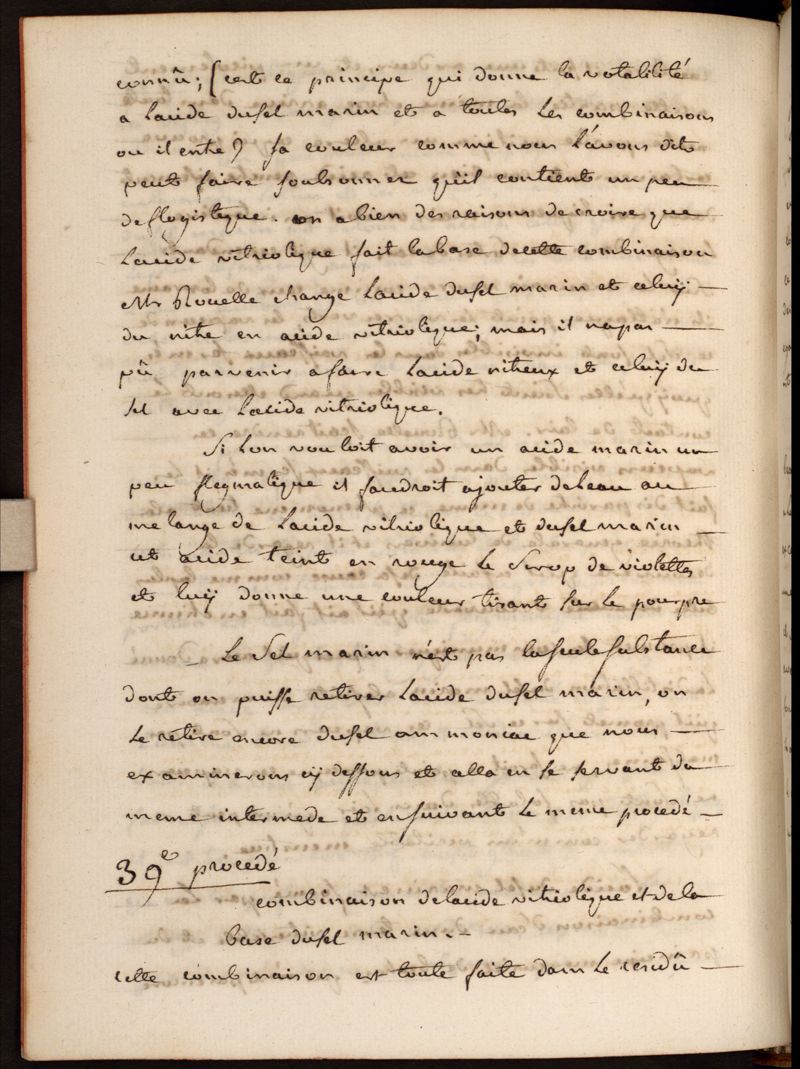 connû; (cest ce principe qui donne la volatilité
a lacide dusel marin et a toutes les combinaisons
ou il entre) sa couleur comme nous l'avons dit
peut faire soubsonner qu'il contient un peu
deflogistique. on abien des raisons de croire que
lacide vitriolique fait labase decette combinaison
Mr Rouelle change lacide dusel marin et celuÿ —
du nitre en acide vitriolique; mais il napas —
pû parvenir afaire lacide nitreux et celuÿ du
sel avec lacide vitriolique.
Si lon vouloit avoir un acide marin un
peu flegmatique il faudroit ajouter deleau au
melange de lacide vitriolique et dusel marin —
cet acide teint en rouge le Sirop de violettes
et luÿ donne une couleur tirant sur le pourpre
_ Le Sel marin n'est pas laseule substance
dont on puisse retirer lacide dusel marin, on
le retire encore dusel ammoniac que nous —
examinerons cÿ dessous et cella en se servant du
meme intermede et ensuivant le meme procedé —
39e procedé
combinaison delacide vitriolique et dela
base dusel marin. —
cette combinaison est toute faite dans le residû —